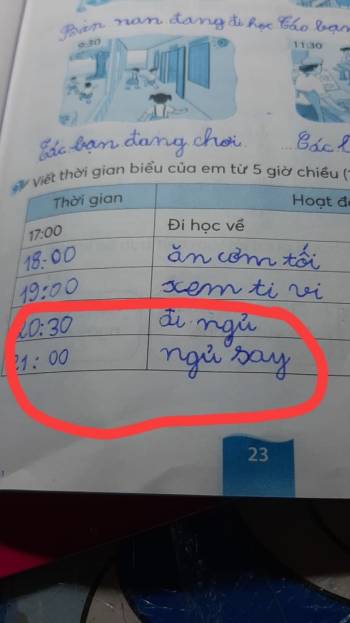 nan đang đi học Các bạn
6:30
11:30
Các bạn đang chơi. Các
Viết thời gian biểu của em từ 5 giờ chiều (
Thời gian Hoạt đ
17:00 Đi học về
18:00 ăn cơm tối
19:00 xem ti vi
20:30 đi ngủ
21:00 ngủ say
23